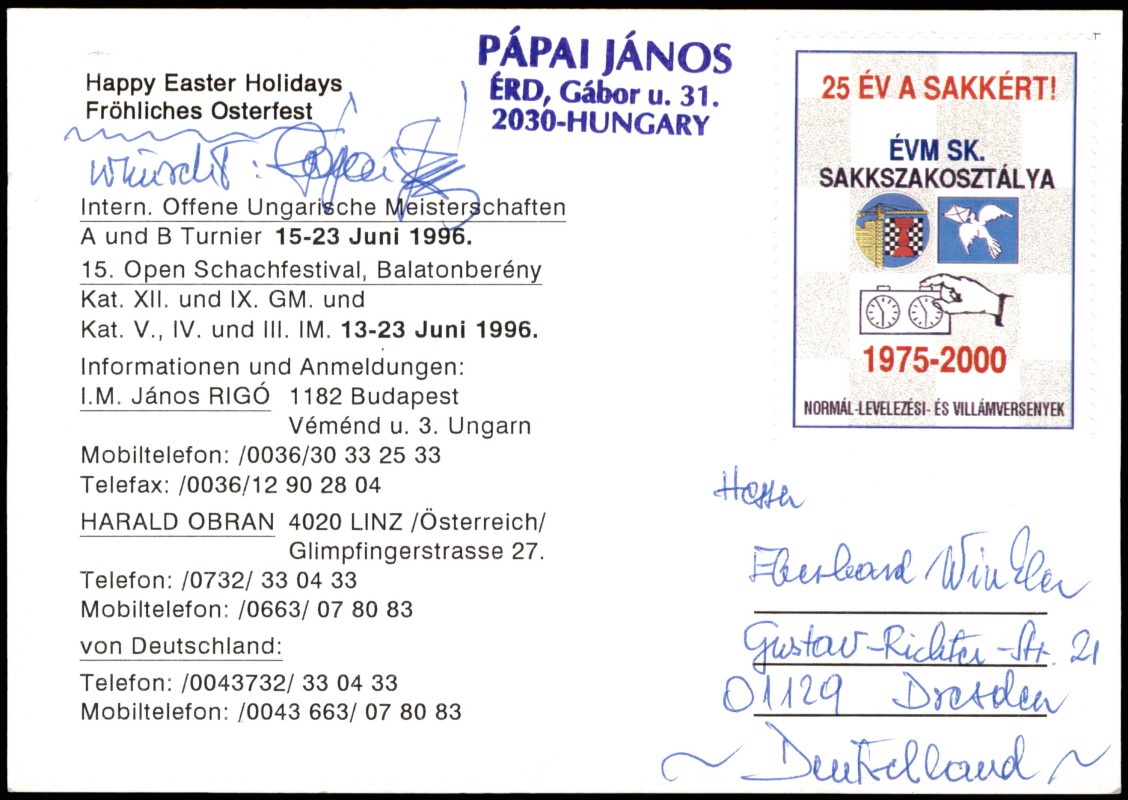 Happy Easter Holidays
Fröhliches Osterfest
wünscht:
Intern. Offene Ungarische Meisterschaften
A und B Turnier 15-23 Juni 1996.
15. Open Schachfestival, Balatonberény
Kat. XII. und IX. GM. und
Kat. V., IV. und III. IM. 13-23 Juni 1996.
Informationen und Anmeldungen:
I.M. János RIGÓ 1182 Budapest
Véménd u. 3. Ungarn
Mobiltelefon: /0036/30 33 25 33
Telefax: /0036/12 90 28 04
HARALD OBRAN 4020 LINZ /Österreich/
Glimpfingerstrasse 27.
Telefon: /0732/ 33 04 33
Mobiltelefon: /0663/ 07 80 83
von Deutschland:
Telefon: /0043732/ 33 04 33
Mobiltelefon: /0043 663/ 07 80 83
PÁPAI JÁNOS
ÉRD, Gábor u. 31.
2030-HUNGARY
25 ÉV A SAKKÉRT!
ÉVM SK.
SAKKSZAKOSZTÁLYA
1975-2000
NORMÁL-LEVELEZÉSI- ÉS VILLÁMVERSENYEK
Eberhard Winkler
Gustav-Richter-Str. 21
01129 Dresden
~ Deutschland ~